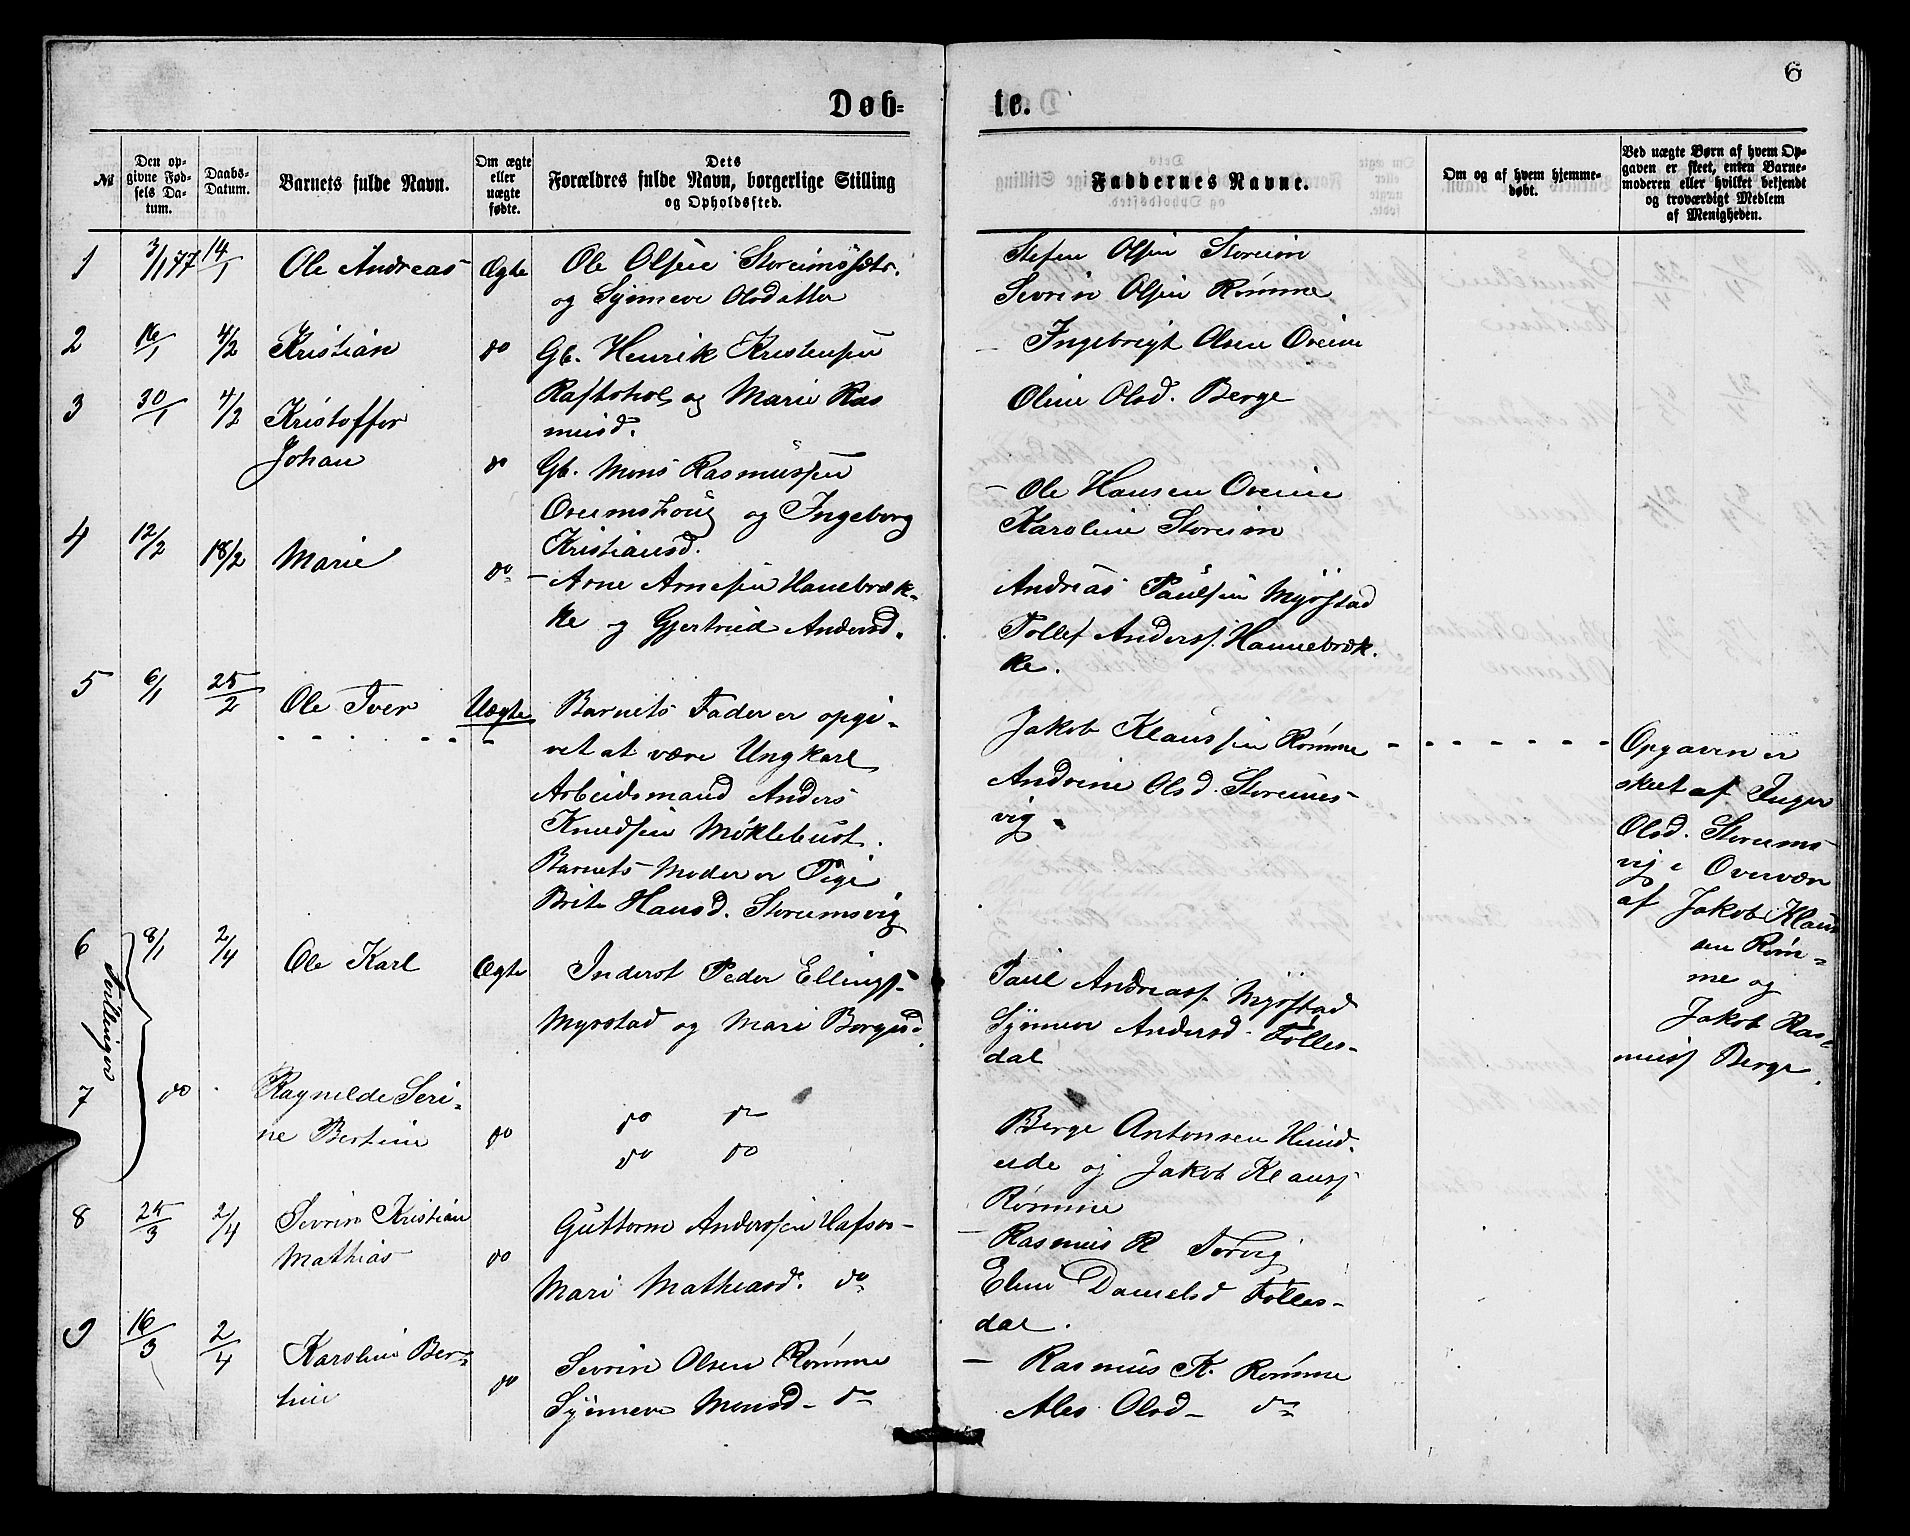 6
Døb-
te.
№
Den op-
givne Fød-
sels Da-
tum.
Daabs-
Datum.
Barnets fulde Navn.
Om ægte
eller
uægte
fødte.
Dets
Forældres fulde Navn, borgerlige Stilling
og Opholdssted.
Faddernes Navne.
Om og af hvem hjemme-
døbt.
Ved uægte Børn af hvem Op-
gaven er skeet, enten Barne-
moderen eller hvilket betjendt
og troværdigt Medlem
af Menigheden.
1 3/1 77 14/1 Ole Andreas Ægte Ole Olsen Storeimsæter.
og Synneve Olsdatter
Stefen Olsen Storeim
Sevrin Olsen Rømme
2 16/1 4/2 Kristian do Gb. Henrik Kristensen
Raftohol og Marie Ras
musd.
Ingebrigt Olsen Oveim
Oline Olsd. Berge
3 30/1 4/2 Kristoffer
Johan do Gb. Mons Rasmussen
Oveimshoug og Ingeborg
Kristiansd.
Ole Hansen Oveim
Karoline Storeim
4 12/2 18/2 Marie do Arne Arnesen Hanebræk-
ke og Gjertrud Andersd.
Andreas Paulsen Myrstad
Tollef Anderss. Hannebræk-
ke.
5 6/1 25/2 Ole Iver Uægte Barnets Fader er opgi-
vet at være Ungkarl
Arbeidsmand Anders
Knudsen Møklebust.
Barnets Moder er Pige
Brite Hansd. Storeimsvig
Jakob Klaussen Rømme
Andrine Olsd. Storeims-
vig.
Opgaven er
skeet af Inger
Olsd. Storeims-
vig i Overvær
af Jakob Klaus
sen Røm-
me og
Jakob Ras-
muss Berge.
Tvillinger
6 8/1 2/4 Ole Karl Ægte Inderst Peder Ellings.
Myrstad og Mari Borgisd.
Paul Andreass. Myrstad
Synneve Andersd. Folles-
dal
7 do Ragnilde Seri-
ne Bertine do do do
do do
Berge Antonsen Hund-
eide og Jakob Klauss
Rømme
8 25/3 2/4 Sevrin Kristian
Mathias do Guttorm Anderssen Hafsos
Mari Mathiasd. do
Rasmus R Torvig
Elen Danielsd Folles-
dal.
9 16/3 2/4 Karoline Ber-
tine do Sevrin Olsen Rømme
Synneve Monsd do
Rasmus K. Rømme
Ales Olsd do